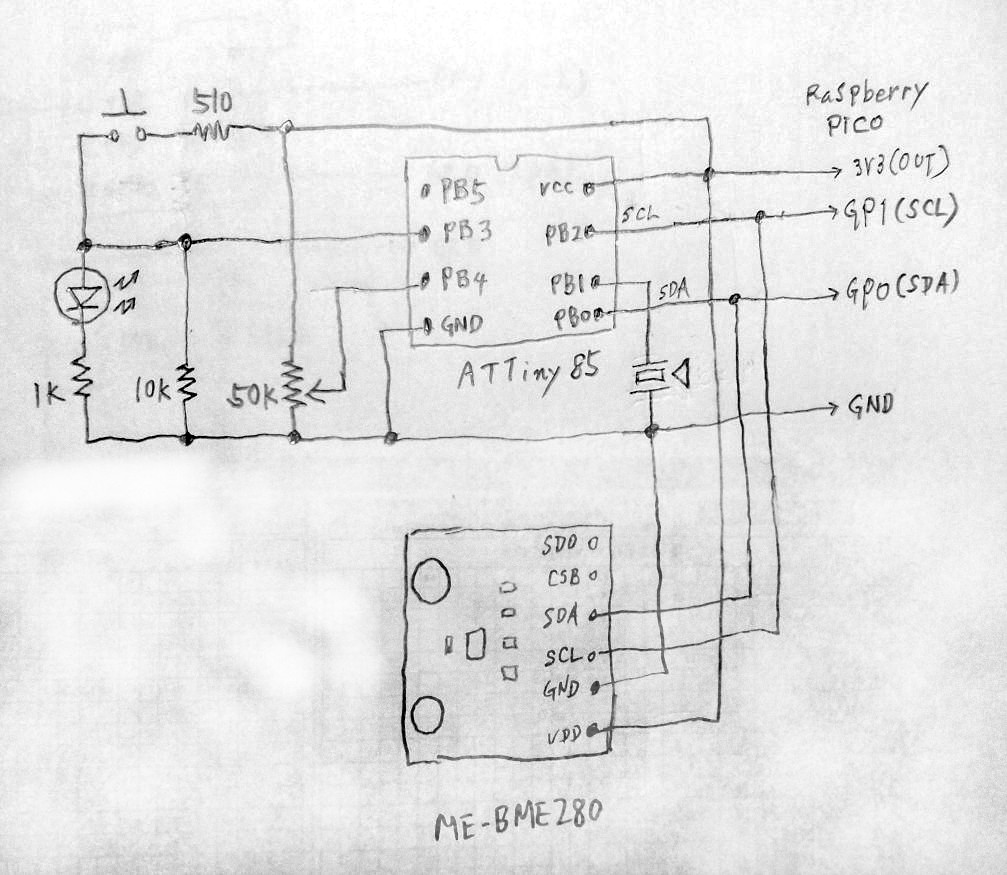 510
Raspberry
PICO
3V3(OUT)
GP1(SCL)
GP0(SDA)
GND
PB5
PB3
PB4
GND
VCC
PB2
PB1
PB0
SCL
SDA
ATTiny85
1K
10K
50K
SDO
CSB
SDA
SCL
GND
VDD
ME-BME280